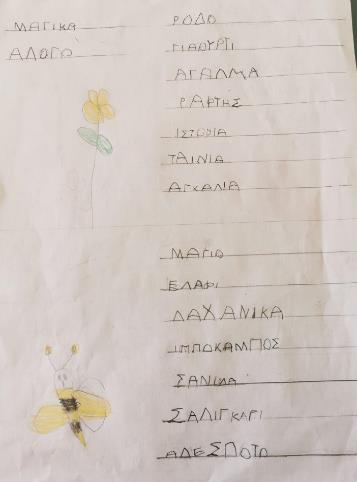 ΜΑΓΙΚΑ
ΑΛΟΓΟ
ΡΟΔΟ
ΓΙΑΟΥΡΤΙ
ΑΓΑΛΜΑ
ΡΑΦΤΗΣ
ΙΣΤΟΡΙΑ
ΤΑΙΝΙΑ
ΑΓΚΑΛΙΑ
ΜΑΓΙΟ
ΕΛΑΦΙ
ΛΑΧΑΝΙΚΑ
ΙΠΠΟΚΑΜΠΟΣ
ΣΑΝΙΔΑ
ΣΑΛΙΓΚΑΡΙ
ΑΔΕΣΠΟΤΟ